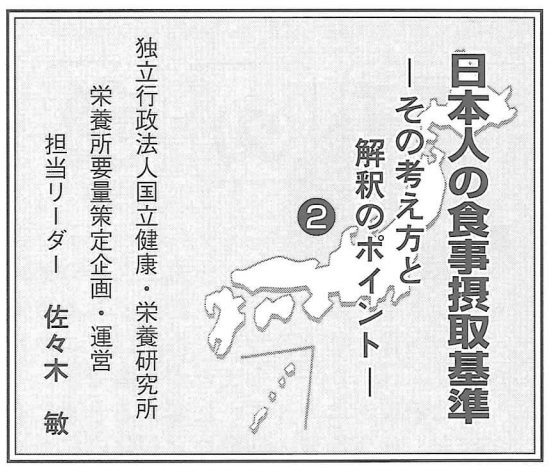 日本人の食事摂取基準
―その考え方と
解釈のポイント―
❷
独立行政法人国立健康・栄養研究所
栄養所要量策定企画・運営
担当リーダー 佐々木 敏